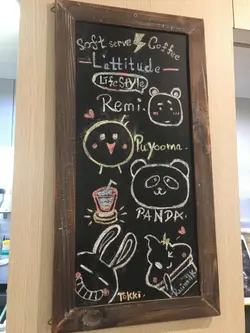 Soft serve & Coffee
L'attitude
Life Style
Remi.
Puyooma.
PANDA.
Tokki.